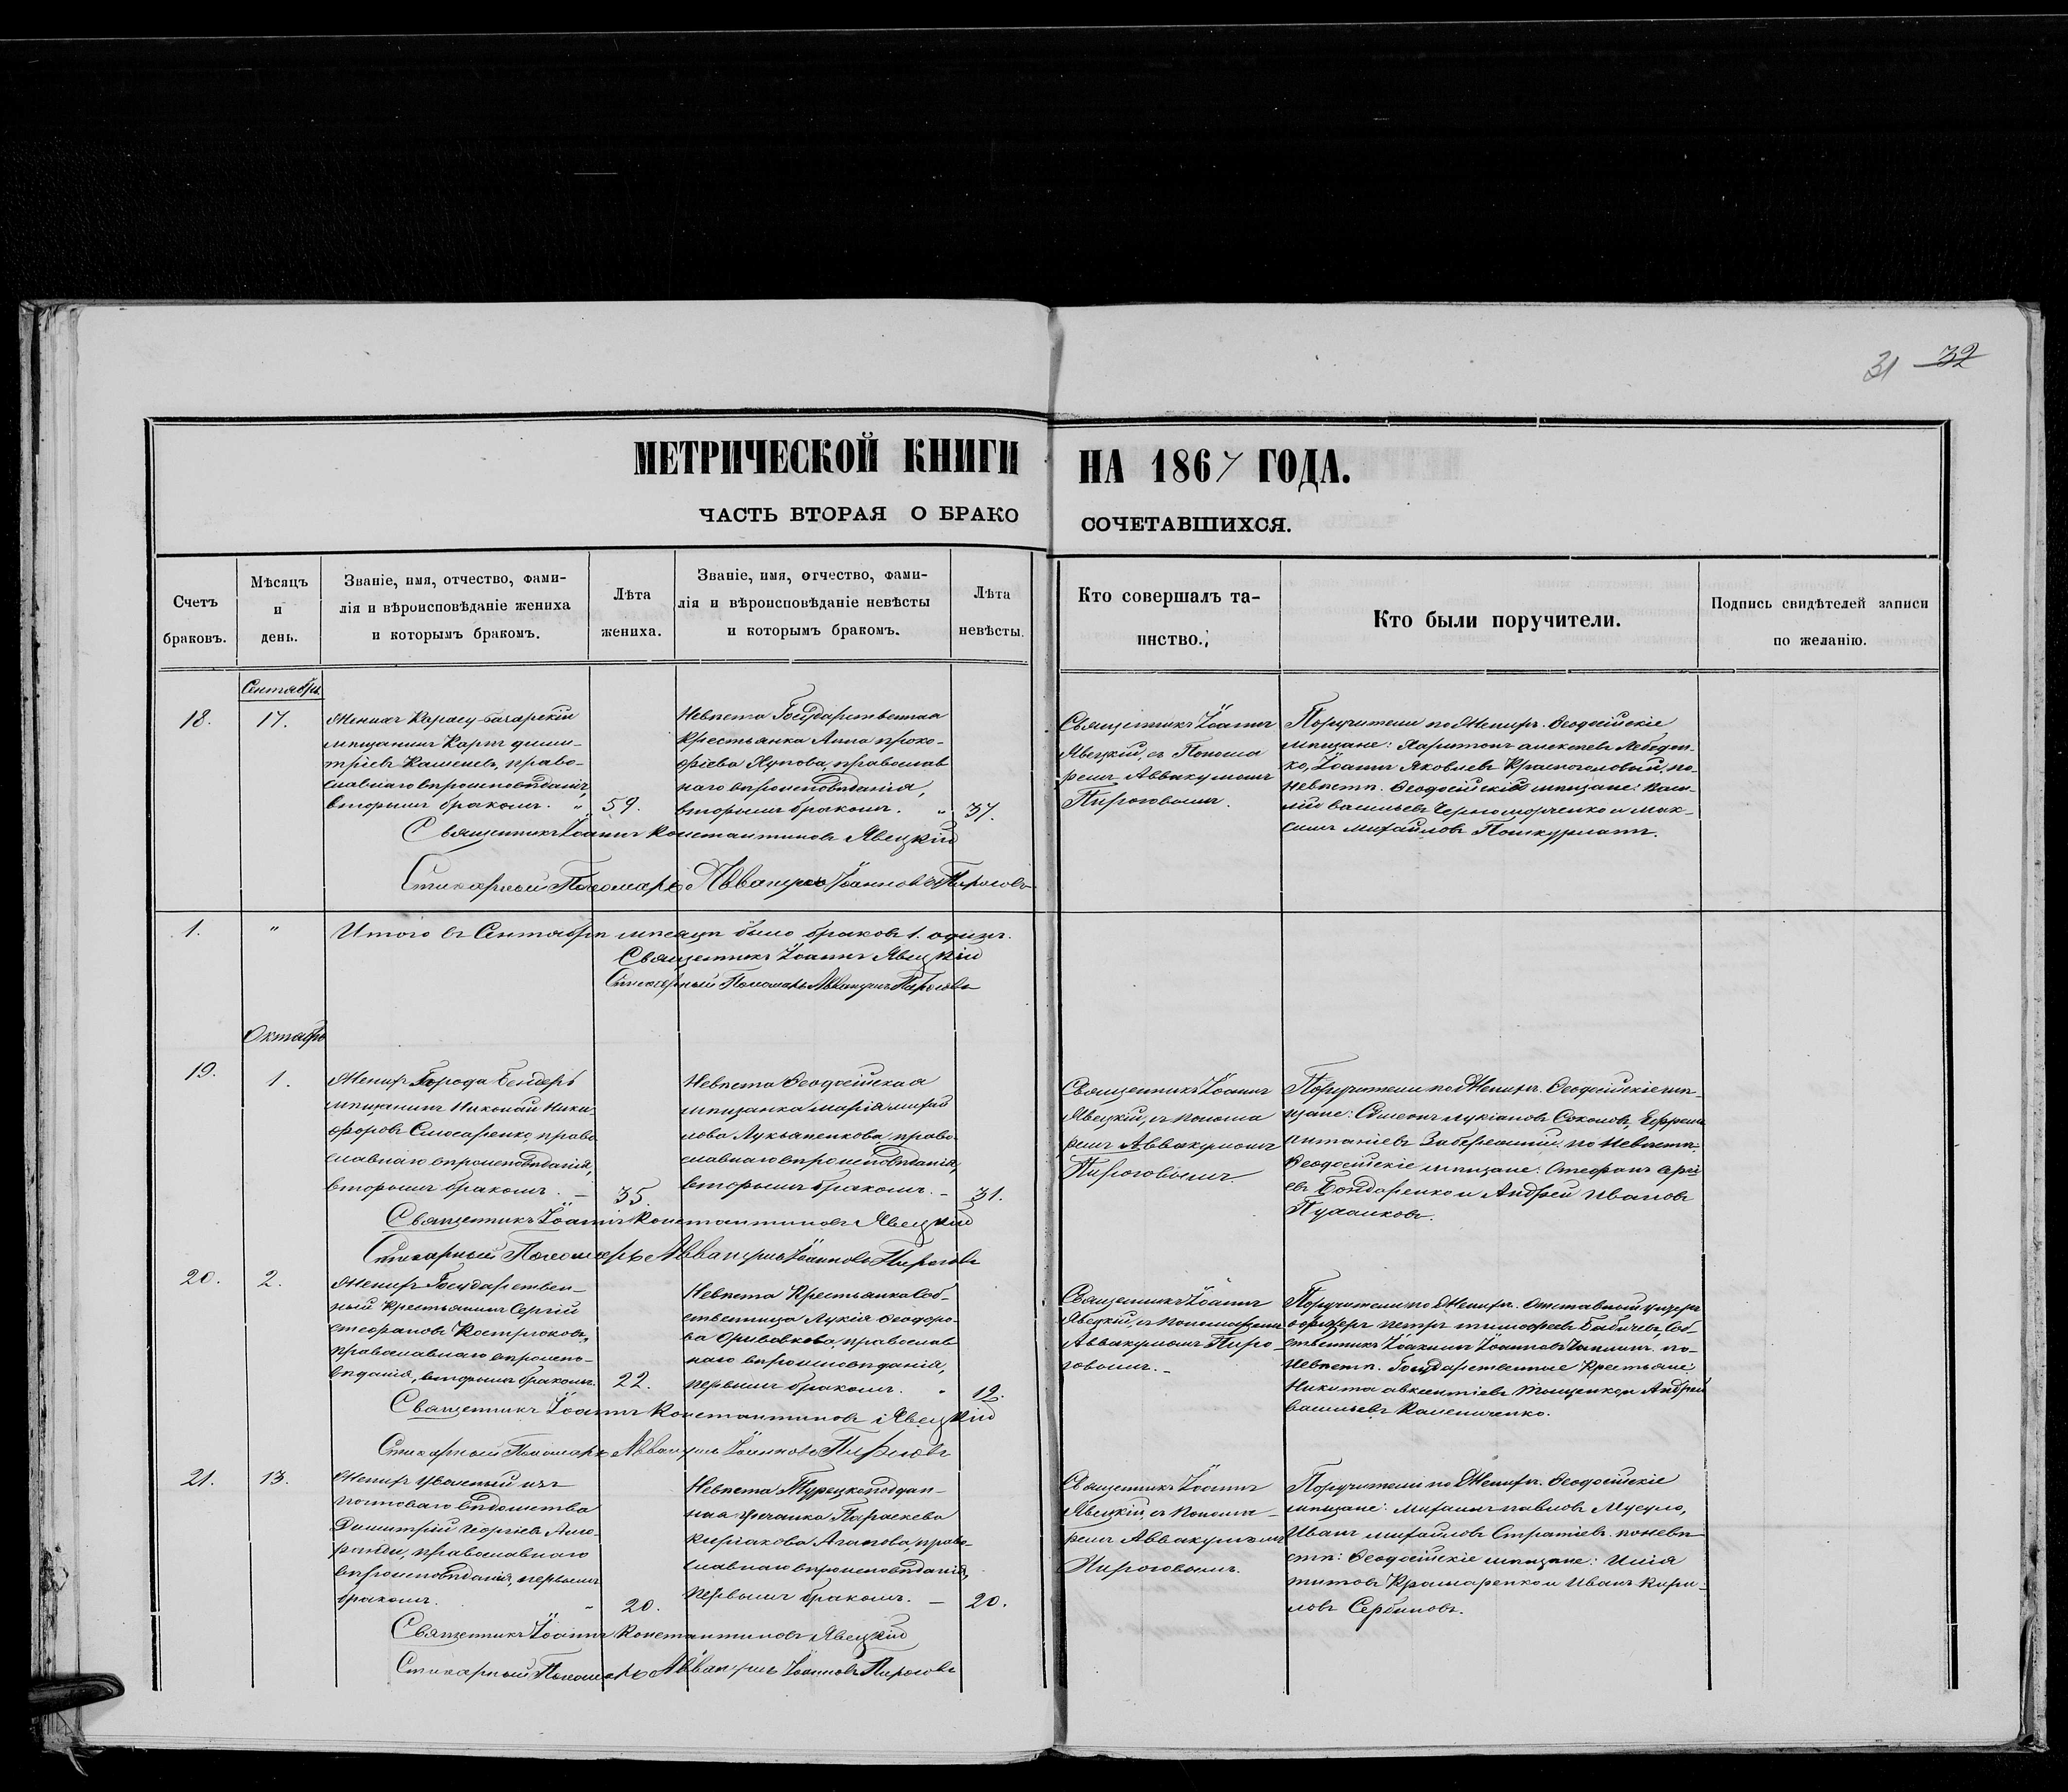 31 32
МЕТРИЧЕСКОЙ КНИГИ НА 1867 ГОДА.
ЧАСТЬ ВТОРАЯ О БРАКОСОЧЕТАВШИХСЯ.
Счетъ браковъ.
Мѣсяцъ и день.
Званіе, имя, отчество, фами-
лія и вѣроисповѣданіе жениха
и которымъ бракомъ.
Лѣта жениха.
Званіе, имя, отчество, фами-
лія и вѣроисповѣданіе невѣсты
и которымъ бракомъ.
Лѣта невѣсты.
Кто совершалъ та-
инство.
Кто были поручители.
Подпись свидѣтелей записи
по желанію.
Сентябрь
18.
17.
Женихъ Карасу-базарскій
мѣщанинъ Карпъ дими-
тріевъ Каменевъ, право-
славнаго вѣроисповѣданія,
вторымъ бракомъ. "
59.
Невѣста Государственная
Крестьянка Анна проко-
фіева Лупова, православ
наго вѣроисповѣданія,
вторымъ бракомъ. "
37.
Священникъ Іоаннъ
Явецкій, съ Понома
ремъ Аввакумомъ
Пироговымъ.
Поручители по Женихѣ. Ѳеодосійскіе
мѣщане: Харитонъ алексѣевъ Лебеден-
ко, Іоаннъ Яковлевъ Красноголовый, по-
Невѣстѣ. Ѳеодосійскіе мѣщане: Васи-
лій васильевъ Черноморченко и Мак-
симъ михайловъ
Священникъ Іоаннъ Константиновъ Явецкій
Стихарный Пономарь Аввакумъ Іоанновъ Пироговъ
1.
"
Итого въ Сентябрѣ мѣсяцѣ было браковъ 1. одинъ.
Священникъ Іоаннъ Явецкій
Стихарный Пономарь Аввакумъ Пироговъ
Октябрь
19.
1.
Женихъ Города Бендеръ
мѣщанинъ Николай Ники-
форовъ Слюсаренко, право
славнаго вѣроисповѣданія,
вторымъ бракомъ. –
35.
Невѣста Ѳеодосійская
мѣщанка марія михай
лова Лукьяненкова, право-
славнаго вѣроисповѣданія,
вторымъ бракомъ. –
31.
Священникъ Іоаннъ
Явецкій, съ понома
ремъ Аввакумомъ
Пироговымъ.
Поручители по Женихѣ. Ѳеодосійскіе мѣ-
щане: Симеонъ лукіановъ Соколовъ, Ефремъ
антаніевъ по Невѣстѣ.
Ѳеодосійскіе мѣщане: Стефанъ сергі
евъ Бондаренко и Андрей Ивановъ
Священникъ Іоаннъ Константиновъ Явецкій
Стихарный Пономарь Аввакумъ Іоанновъ Пироговъ
20.
2.
Женихъ Государствен-
ный Крестьянинъ Сергій
стефановъ Кострюковъ,
православнаго вѣроиспо-
вѣданія, вторымъ бракомъ.
22.
Невѣста Крестьянка Соб-
ственница Лукія Ѳеодоро-
ва православ
наго вѣроисповѣданія,
первымъ бракомъ. "
19.
Священникъ Іоаннъ
Явецкій, съ пономаремъ
Аввакумомъ Пиро-
говымъ. –
Поручители по Женихѣ. Отставный унтеръ
офицеръ петръ тимофеевъ Бабичевъ, Соб-
ственникъ Іоакимъ Іоанновъ по-
Невѣстѣ. Государственные Крестьяне:
Никита авксентіевъ Тощенко и Андрей
васильевъ Калениченко.
Священникъ Іоаннъ Константиновъ Явецкій
Стихарный Пономарь Аввакумъ Іоанновъ Пироговъ
21.
13.
Женихъ уволеный изъ
почтоваго вѣдомства
Димитрій георгіевъ
православнаго
вѣроисповѣданія, первымъ
бракомъ. "
20.
Невѣста Турецкоподдан-
ная гречанка Параскева
киріакова Агапова, право-
славнаго вѣроисповѣданія,
первымъ бракомъ. –
20.
Священникъ Іоаннъ
Явецкій, съ понома-
ремъ Аввакумомъ
Пироговымъ.
Поручители по Женихѣ. Ѳеодосійскіе
мѣщане: михаилъ павловъ
Иванъ михайловъ Стратіевъ. по невѣ-
стѣ: Ѳеодосійскіе мѣщане: Илія
титовъ Крамаренко и Иванъ кири-
ловъ Сербиновъ.
Священникъ Іоаннъ Константиновъ Явецкій
Стихарный Пономарь Аввакумъ Іоанновъ Пироговъ